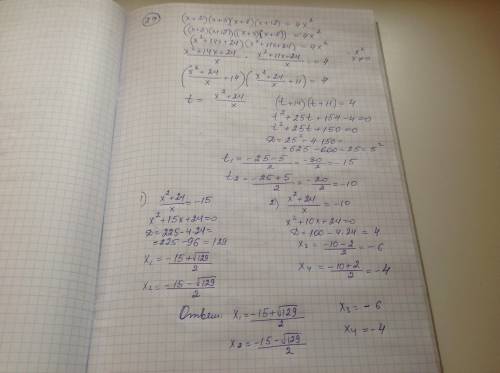 29
(x+2)(x+3)(x+8)(x+12) = 4x²
((x+2)(x+12))((x+3)(x+8)) = 4x²
(x²+14x+24)(x²+11x+24) = 4x²
(x²+14x+24)/x · (x²+11x+24)/x = 4    x² x≠0
((x²+24)/x + 14)((x²+24)/x + 11) = 4
t = (x²+24)/x    (t+14)(t+11) = 4
t²+25t+154-4=0
t²+25t+150=0
D = 25²-4·150=
=625-600=25=5²
t₁ = (-25-5)/2 = -30/2 = -15
t₂ = (-25+5)/2 = -20/2 = -10
1) (x²+24)/x = -15
x²+15x+24=0
D=225-4·24=
=225-96=129
x₁ = (-15+√129)/2
x₂ = (-15-√129)/2
2) (x²+24)/x = -10
x²+10x+24=0
D=100-4·24=4
x₃ = (-10-2)/2 = -6
x₄ = (-10+2)/2 = -4
Ответ: x₁ = (-15+√129)/2    x₃ = -6
x₂ = (-15-√129)/2    x₄ = -4